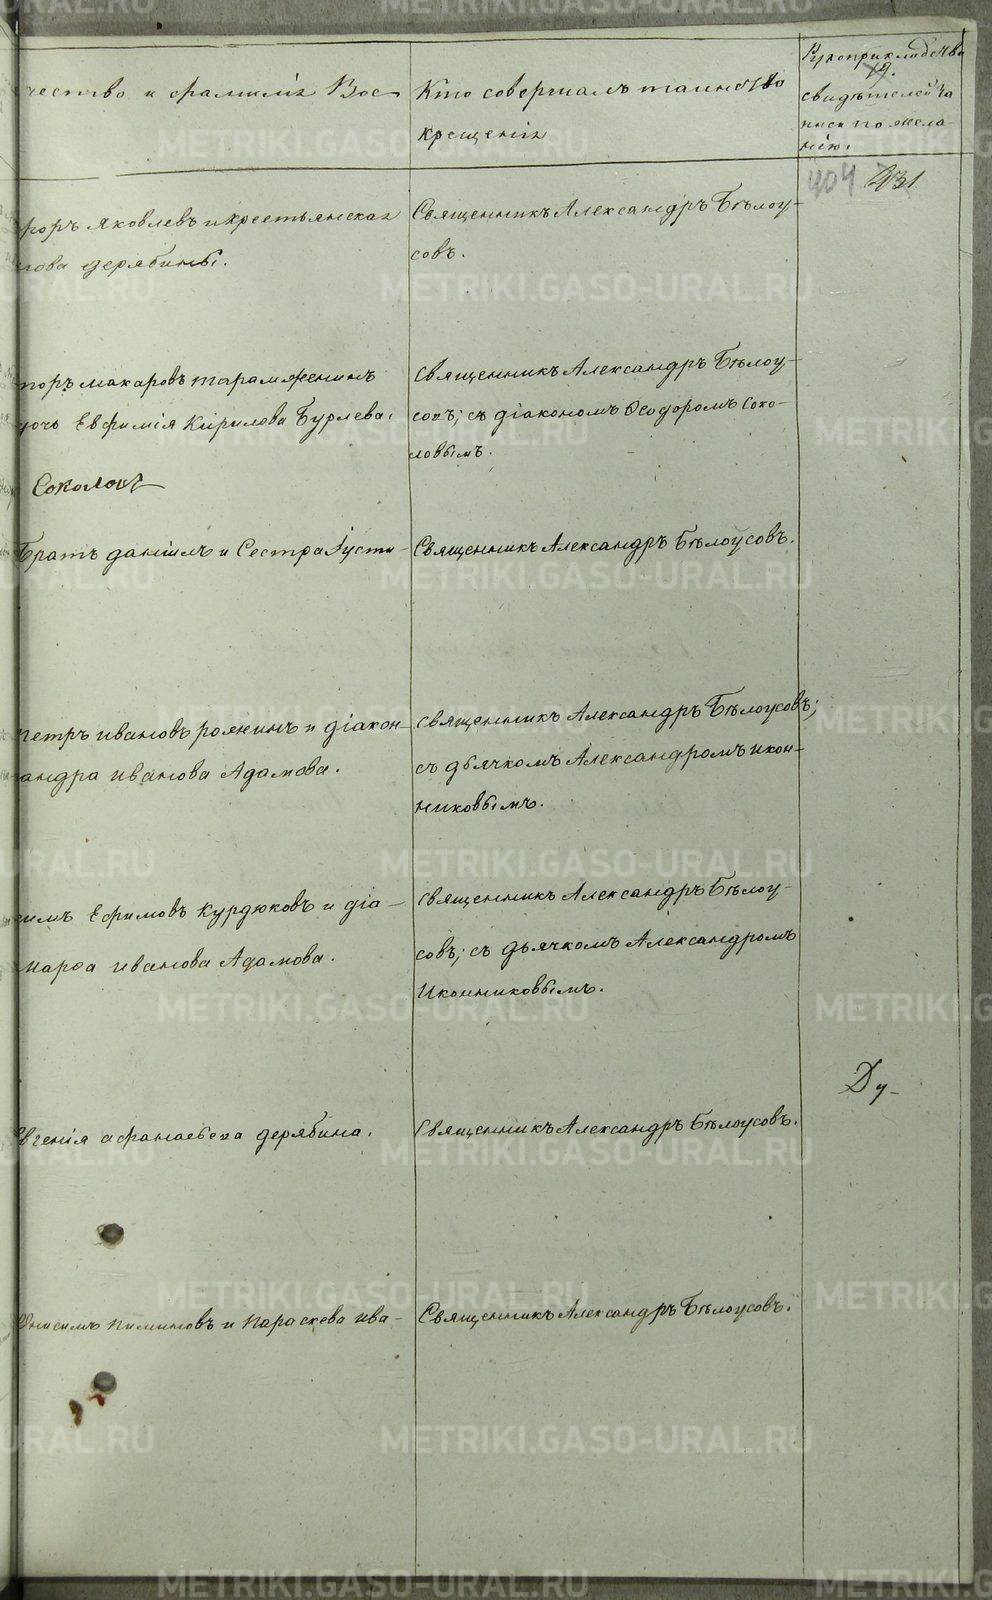 чество и фамилія Вос-
Кто совершалъ таинство
крещенія
Рукоприкладство
19.
свидѣтелей за
писи по жела-
нію.
404 431
форъ Яковлевъ и крестьянская
нова Дерябины.
Священникъ Александръ Бѣлоу-
совъ.
торъ Макаровъ
дочь Евфимія Кирилова Бурлева.
Соколовъ
Священникъ Александръ Бѣлоу-
совъ; съ діакономъ Ѳеодоромъ Соко-
ловымъ.
Братъ Даніилъ и Сестра Іусти-
Священникъ Александръ Бѣлоусовъ.
петръ Ивановъ и діакон-
сандра Иванова Адамова.
Священникъ Александръ Бѣлоусовъ;
съ дьячкомъ Александромъ Икон-
никовымъ.
симъ Ефимовъ Курдюковъ и діа-
Марѳа Иванова Адамова.
Священникъ Александръ Бѣлоу-
совъ; съ дьячкомъ Александромъ
Иконниковымъ.
Ду-
Евгенія Афанасьева Дерябина.
Священникъ Александръ Бѣлоусовъ.
Онисимъ Пиминовъ и Параскева Ива-
Священникъ Александръ Бѣлоусовъ.
METRIKI.GASO-URAL.RU